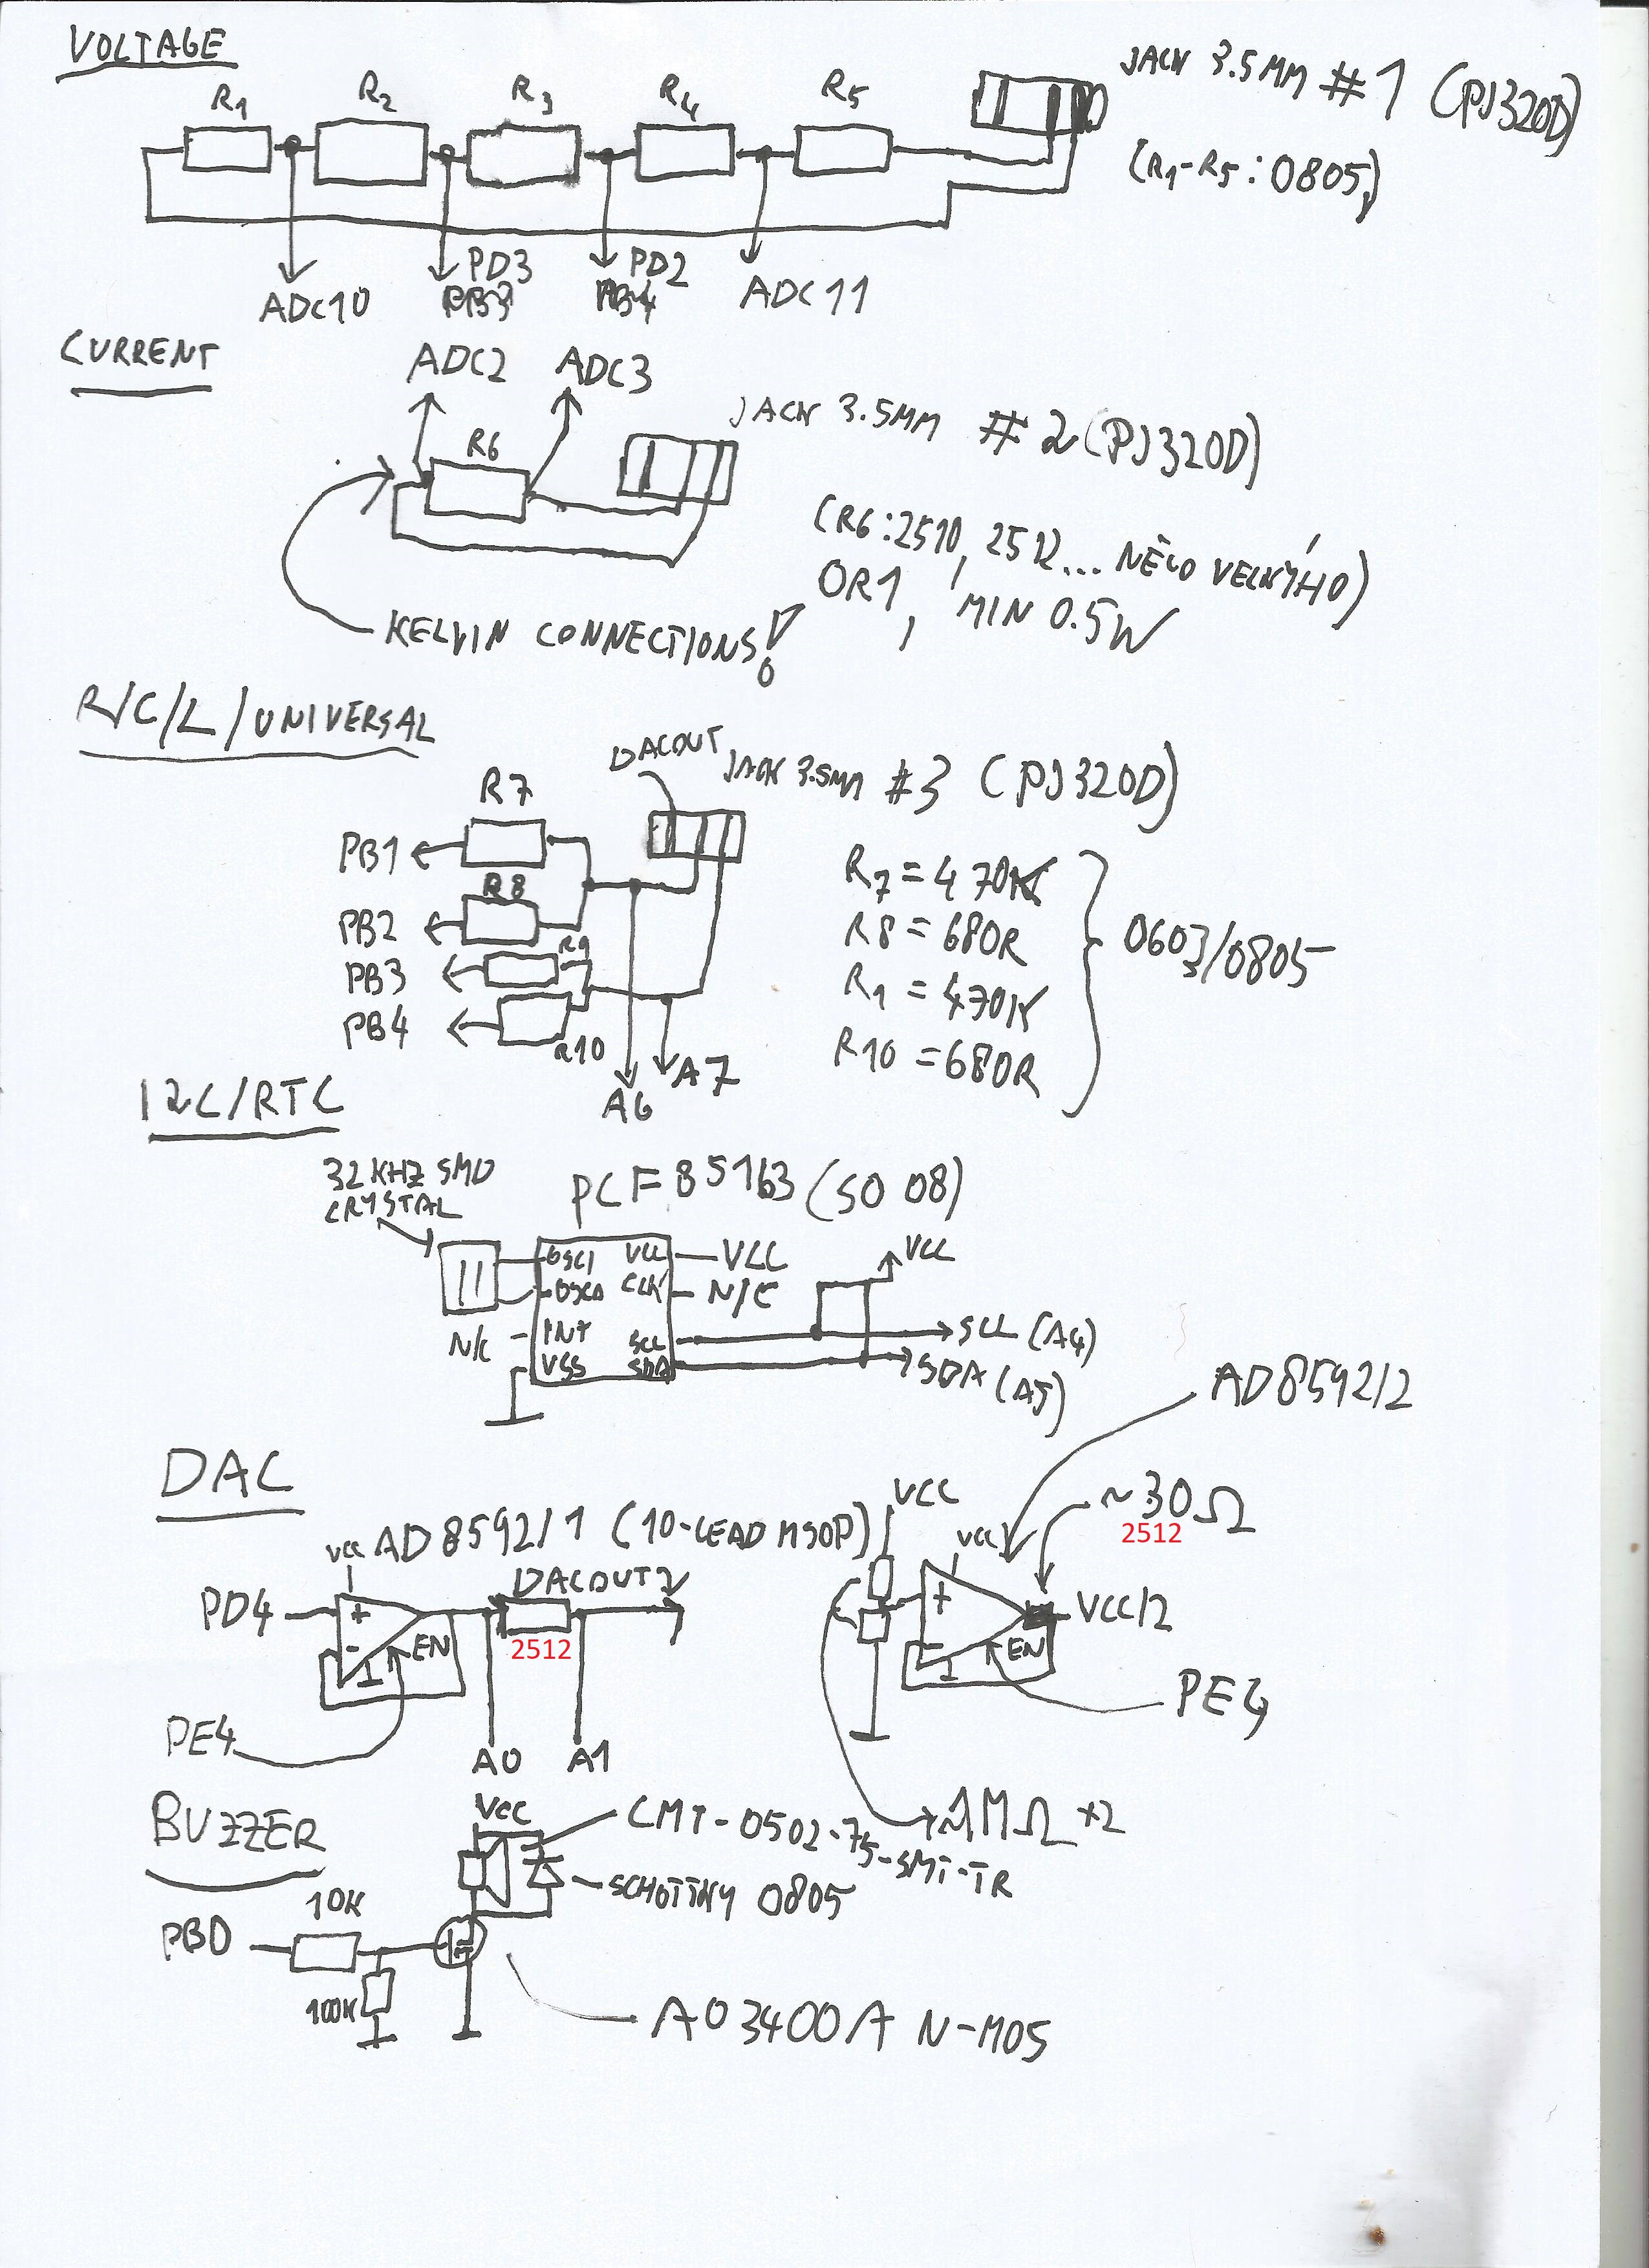 VOLTAGE
R1 R2 R3 R4 R5
JACK 3.5MM #1 (PJ320D)
(R1-R5: 0805)
ADC10 PD3 PD2 ADC11
PB3 PB4
CURRENT
ADC2 ADC3
R6
JACK 3.5MM #2 (PJ320D)
(R6: 2510, 2512... NĚCO VELKÝHO)
0R1, MIN 0.5W
KELVIN CONNECTIONS!
R/C/L/UNIVERSAL
DACOUT JACK 3.5MM #3 (PJ320D)
R7
PB1
R8
PB2
R9
PB3
PB4
R10
A6 A7
R7 = 470K
R8 = 680R
R9 = 470K
R10 = 680R
0603/0805
I2C/RTC
32KHZ SMD
CRYSTAL
PCF85163 (SO 08)
OSCI VCC VCC
OSCO CLK N/C
N/C INT SCL SCL (A4)
VSS SDA SDA (A5)
VCC
DAC
AD8592/1 (10-LEAD MSOP)
VCC
PD4 + - EN
DACOUT2
2512
PE4
A0 A1
AD8592/2
VCC
VCC
~30Ω
2512
+ - EN
VCC/2
PE4
1MΩ x2
BUZZER
VCC
CMT-0502-75-SMT-TR
SCHOTTKY 0805
10K
PB0
100K
AO3400A N-MOS